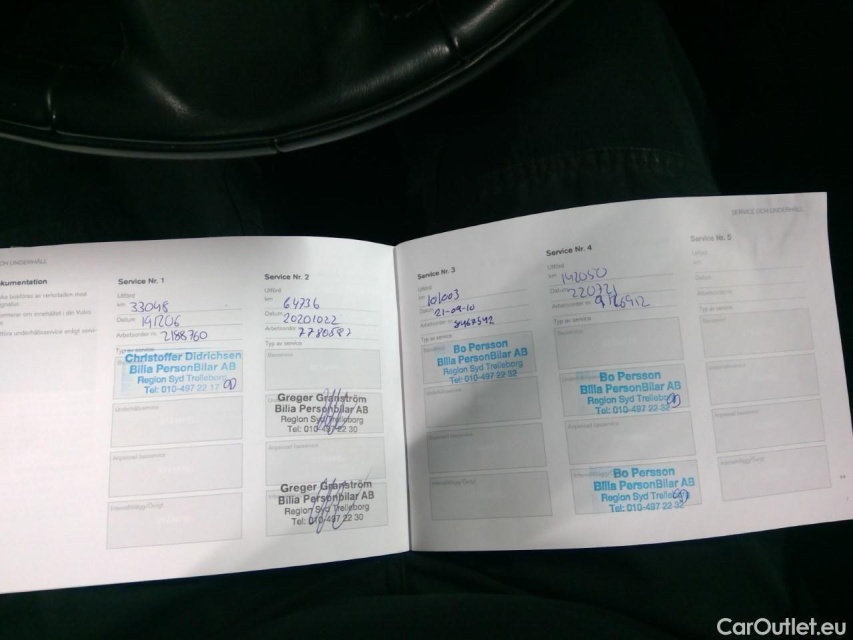 SERVICE OCH UNDERHÅLL
Service Nr. 1
Utförd
km 33048
Datum 191206
Arbetsorder nr. 2188760
Typ av service
Christoffer Didrichsen
Bilia PersonBilar AB
Region Syd Trelleborg
Tel: 010-497 22 17
Service Nr. 2
Utförd
km 64736
Datum 20201022
Arbetsorder
Typ av service
Greger Granström
Bilia Personbilar AB
Region Syd Trelleborg
Tel: 010-497 22 30
Greger Granström
Bilia Personbilar AB
Region Syd Trelleborg
Tel: 010-497 22 30
Service Nr. 3
Utförd
km 101003
Datum 21-09-10
Arbetsorder
Typ av service
Bo Persson
Bilia PersonBilar AB
Region Syd Trelleborg
Tel: 010-497 22 32
Service Nr. 4
Utförd
km 142050
Datum 220721
Arbetsorder nr. 9126912
Typ av service
Bo Persson
Bilia PersonBilar AB
Region Syd Trelleborg
Tel: 010-497 22 32
Bo Persson
Bilia PersonBilar AB
Region Syd Trelleborg
Tel: 010-497 22 32
Service Nr. 5
CarOutlet.eu